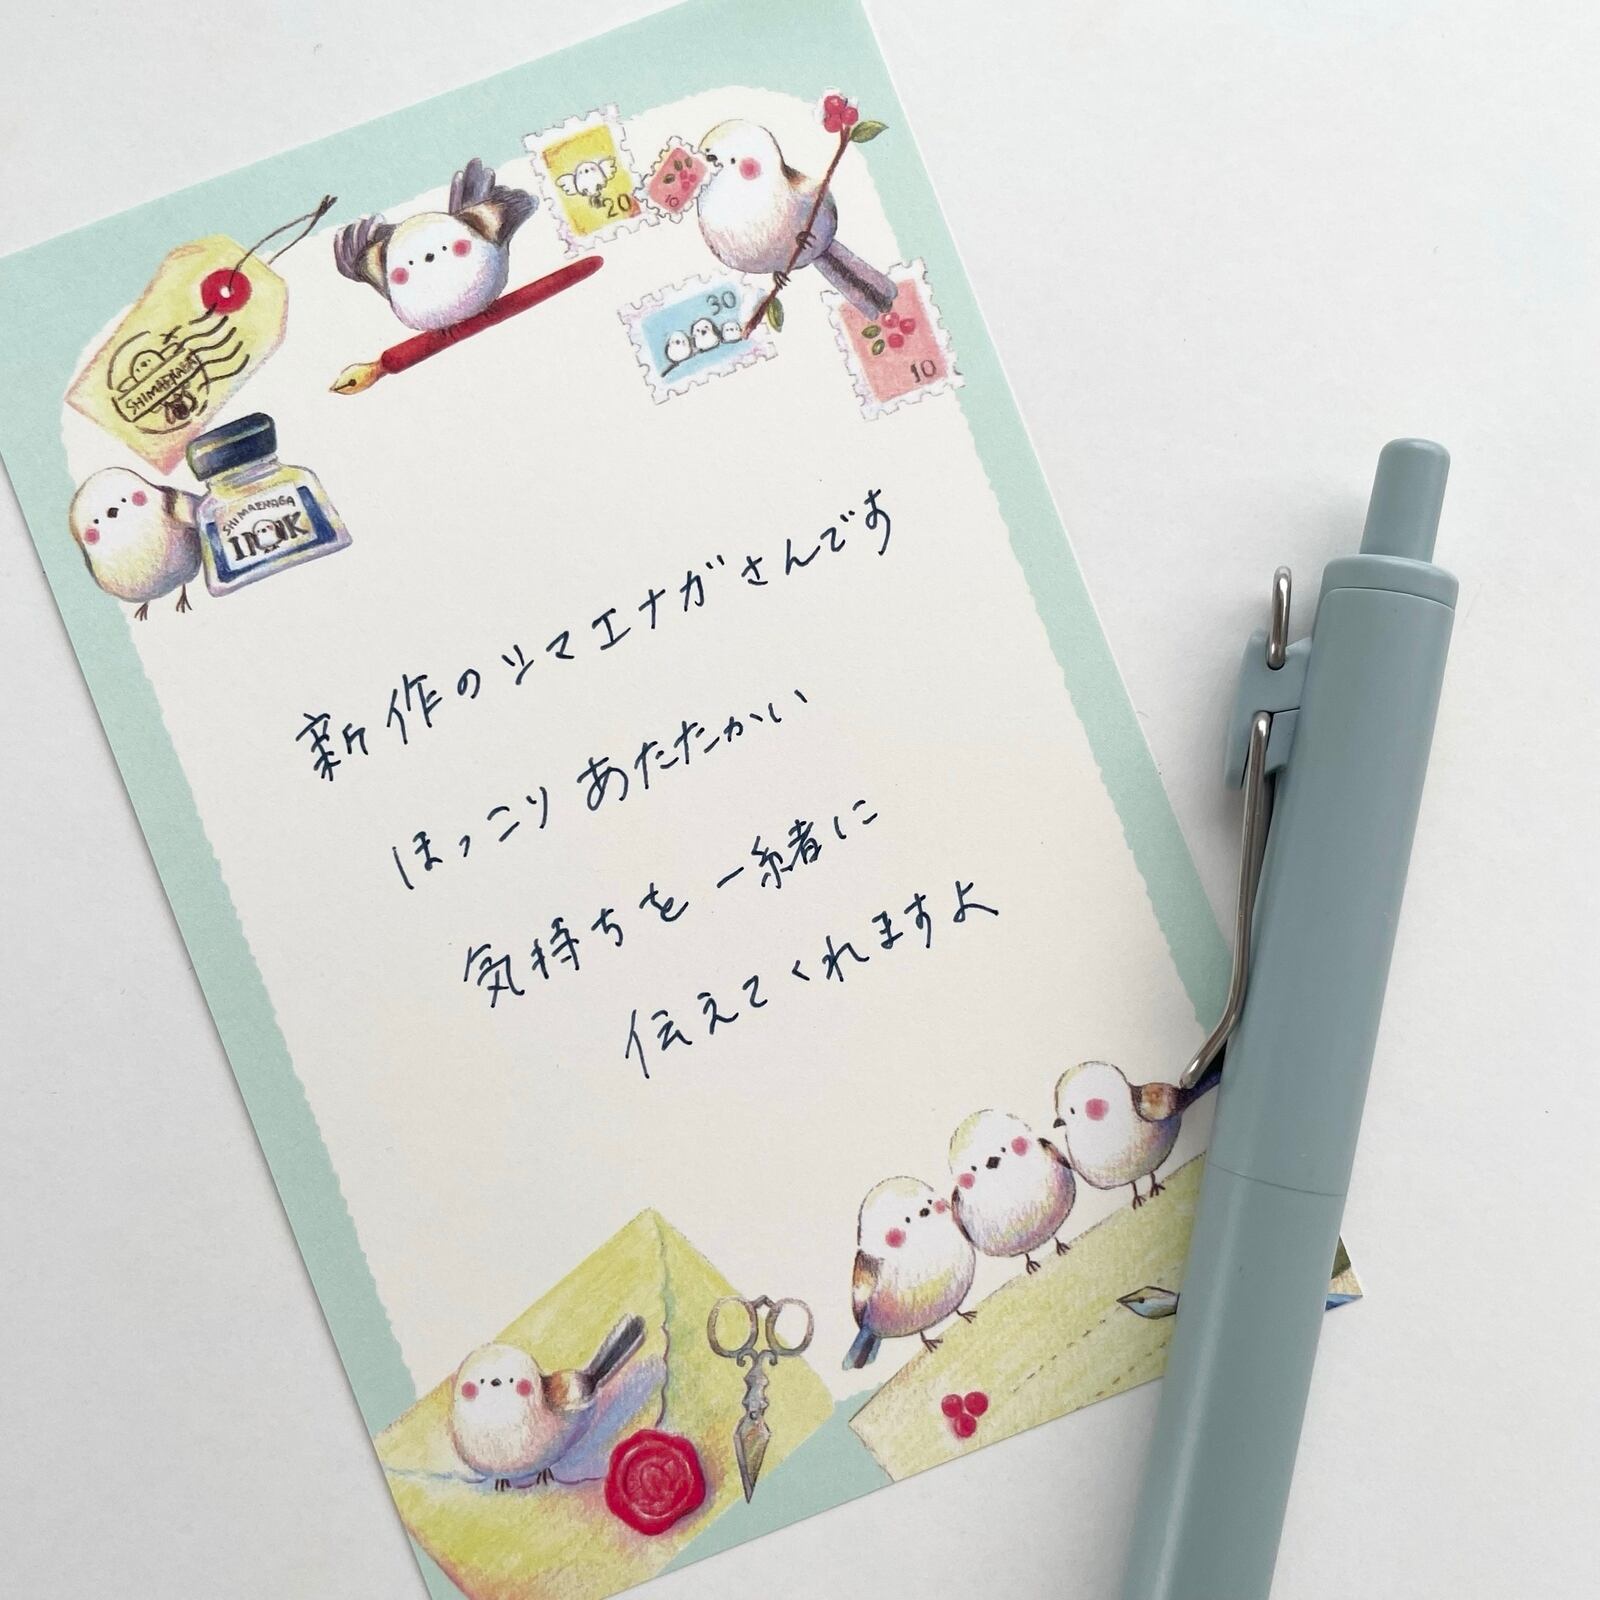 20
10
30
10
SHIMAENAGA
SHIMAENAGA
INK
新作のシマエナガさんです
ほっこりあたたかい
気持ちを一緒に
伝えてくれますよ